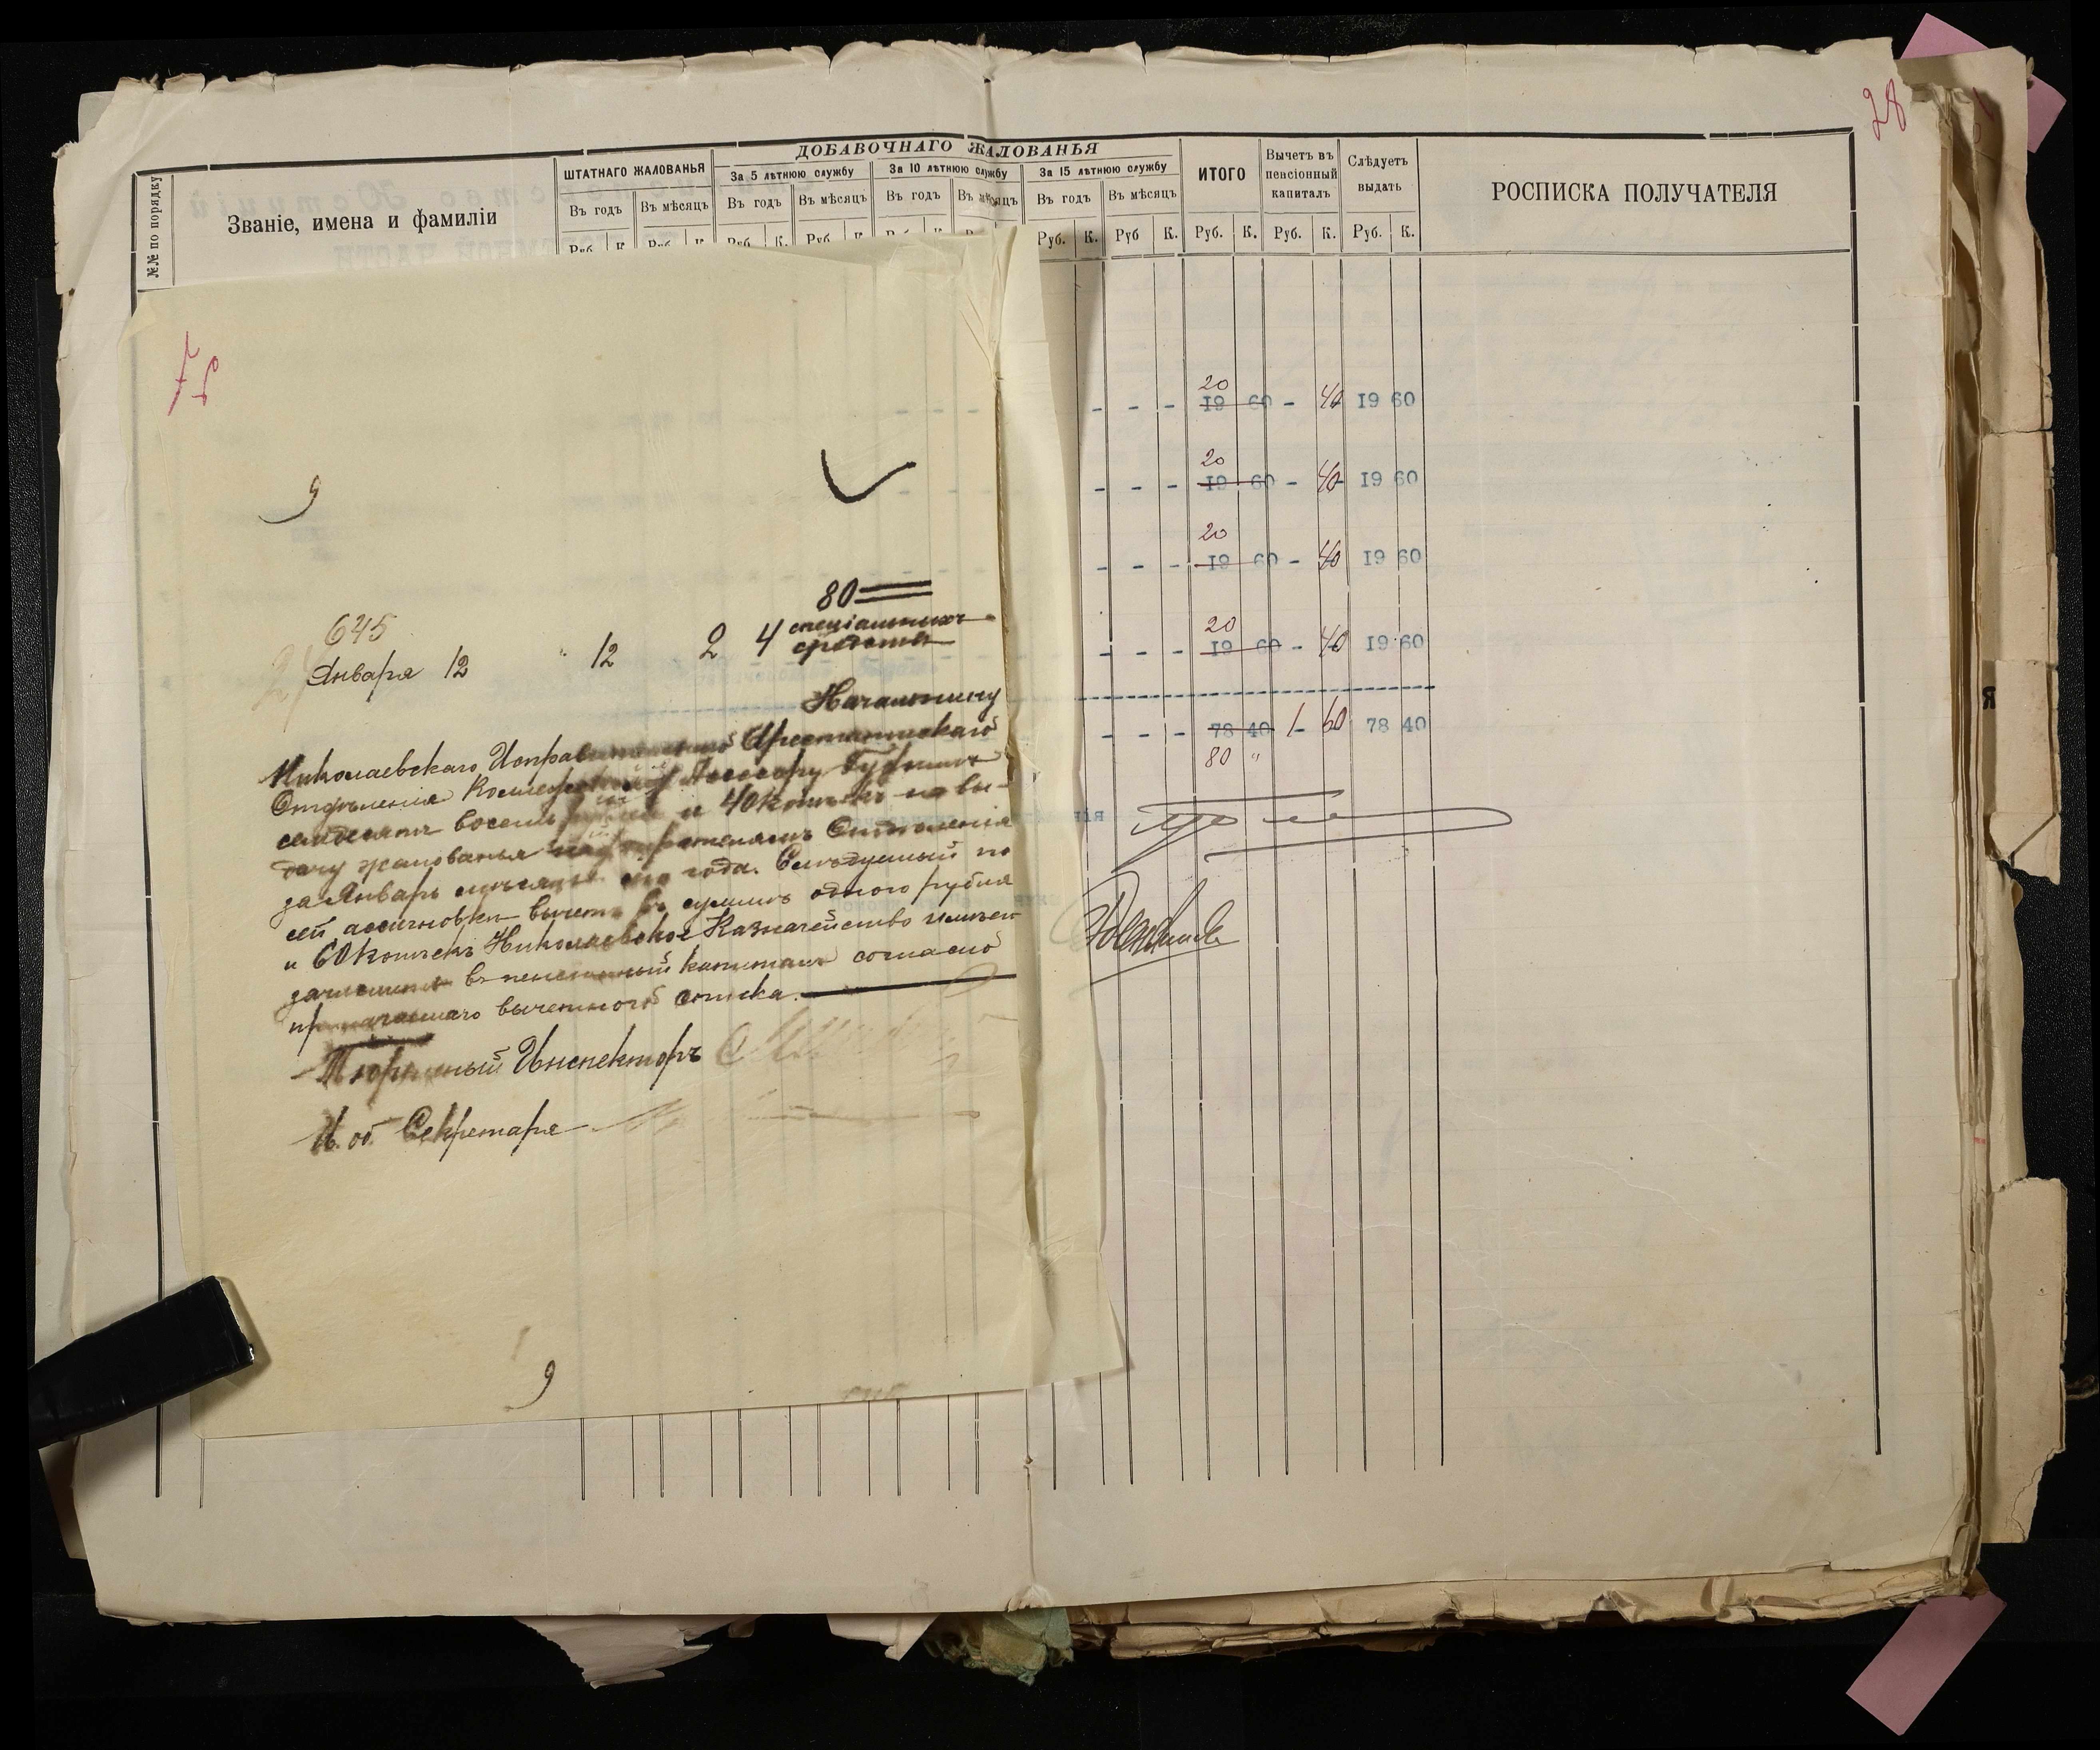 28
ДОБАВОЧНАГО ЖАЛОВАНЬЯ
№№ по порядку
Званіе, имена и фамиліи
ШТАТНАГО ЖАЛОВАНЬЯ
За 5 лѣтнюю службу
За 10 лѣтнюю службу
За 15 лѣтнюю службу
ИТОГО
Вычетъ въ пенсіонный капиталъ
Слѣдуетъ выдать
РОСПИСКА ПОЛУЧАТЕЛЯ
Въ годъ Въ мѣсяцъ Въ годъ Въ мѣсяцъ Въ годъ Въ мѣсяцъ Въ годъ Въ мѣсяцъ
Руб. К. Руб. К. Руб. К. Руб. К. Руб. К. Руб. Руб. К. Руб К. Руб. К. Руб. К. Руб. К.
20
- - - 19 60 - 40 19 60
20
- - - 19 60 - 40 19 60
20
- - - 19 60 - 40 19 60
20
- - - 19 60 - 40 19 60
- - - 78 40 1 60 78 40
80 "
9
80
645
Января 12 12 2 4 спеціальныхъ
средствъ
Начальнику
Николаевскаго Исправительнаго Арестантскаго
Отдѣленія Ассесору
семьдесятъ восемь и 40 копѣекъ на вы-
дачу жалованья Отдѣленія
за Январь мѣсяцъ сего года. Слѣдуемый по
сей ассигновкѣ вычетъ въ суммѣ одного рубля
и 60 копѣекъ Николаевское Казначейство имѣетъ
зачислить въ пенсіонный капиталъ согласно
вычетнаго списка.
Тюремный Инспекторъ
И. об. Секретаря
9